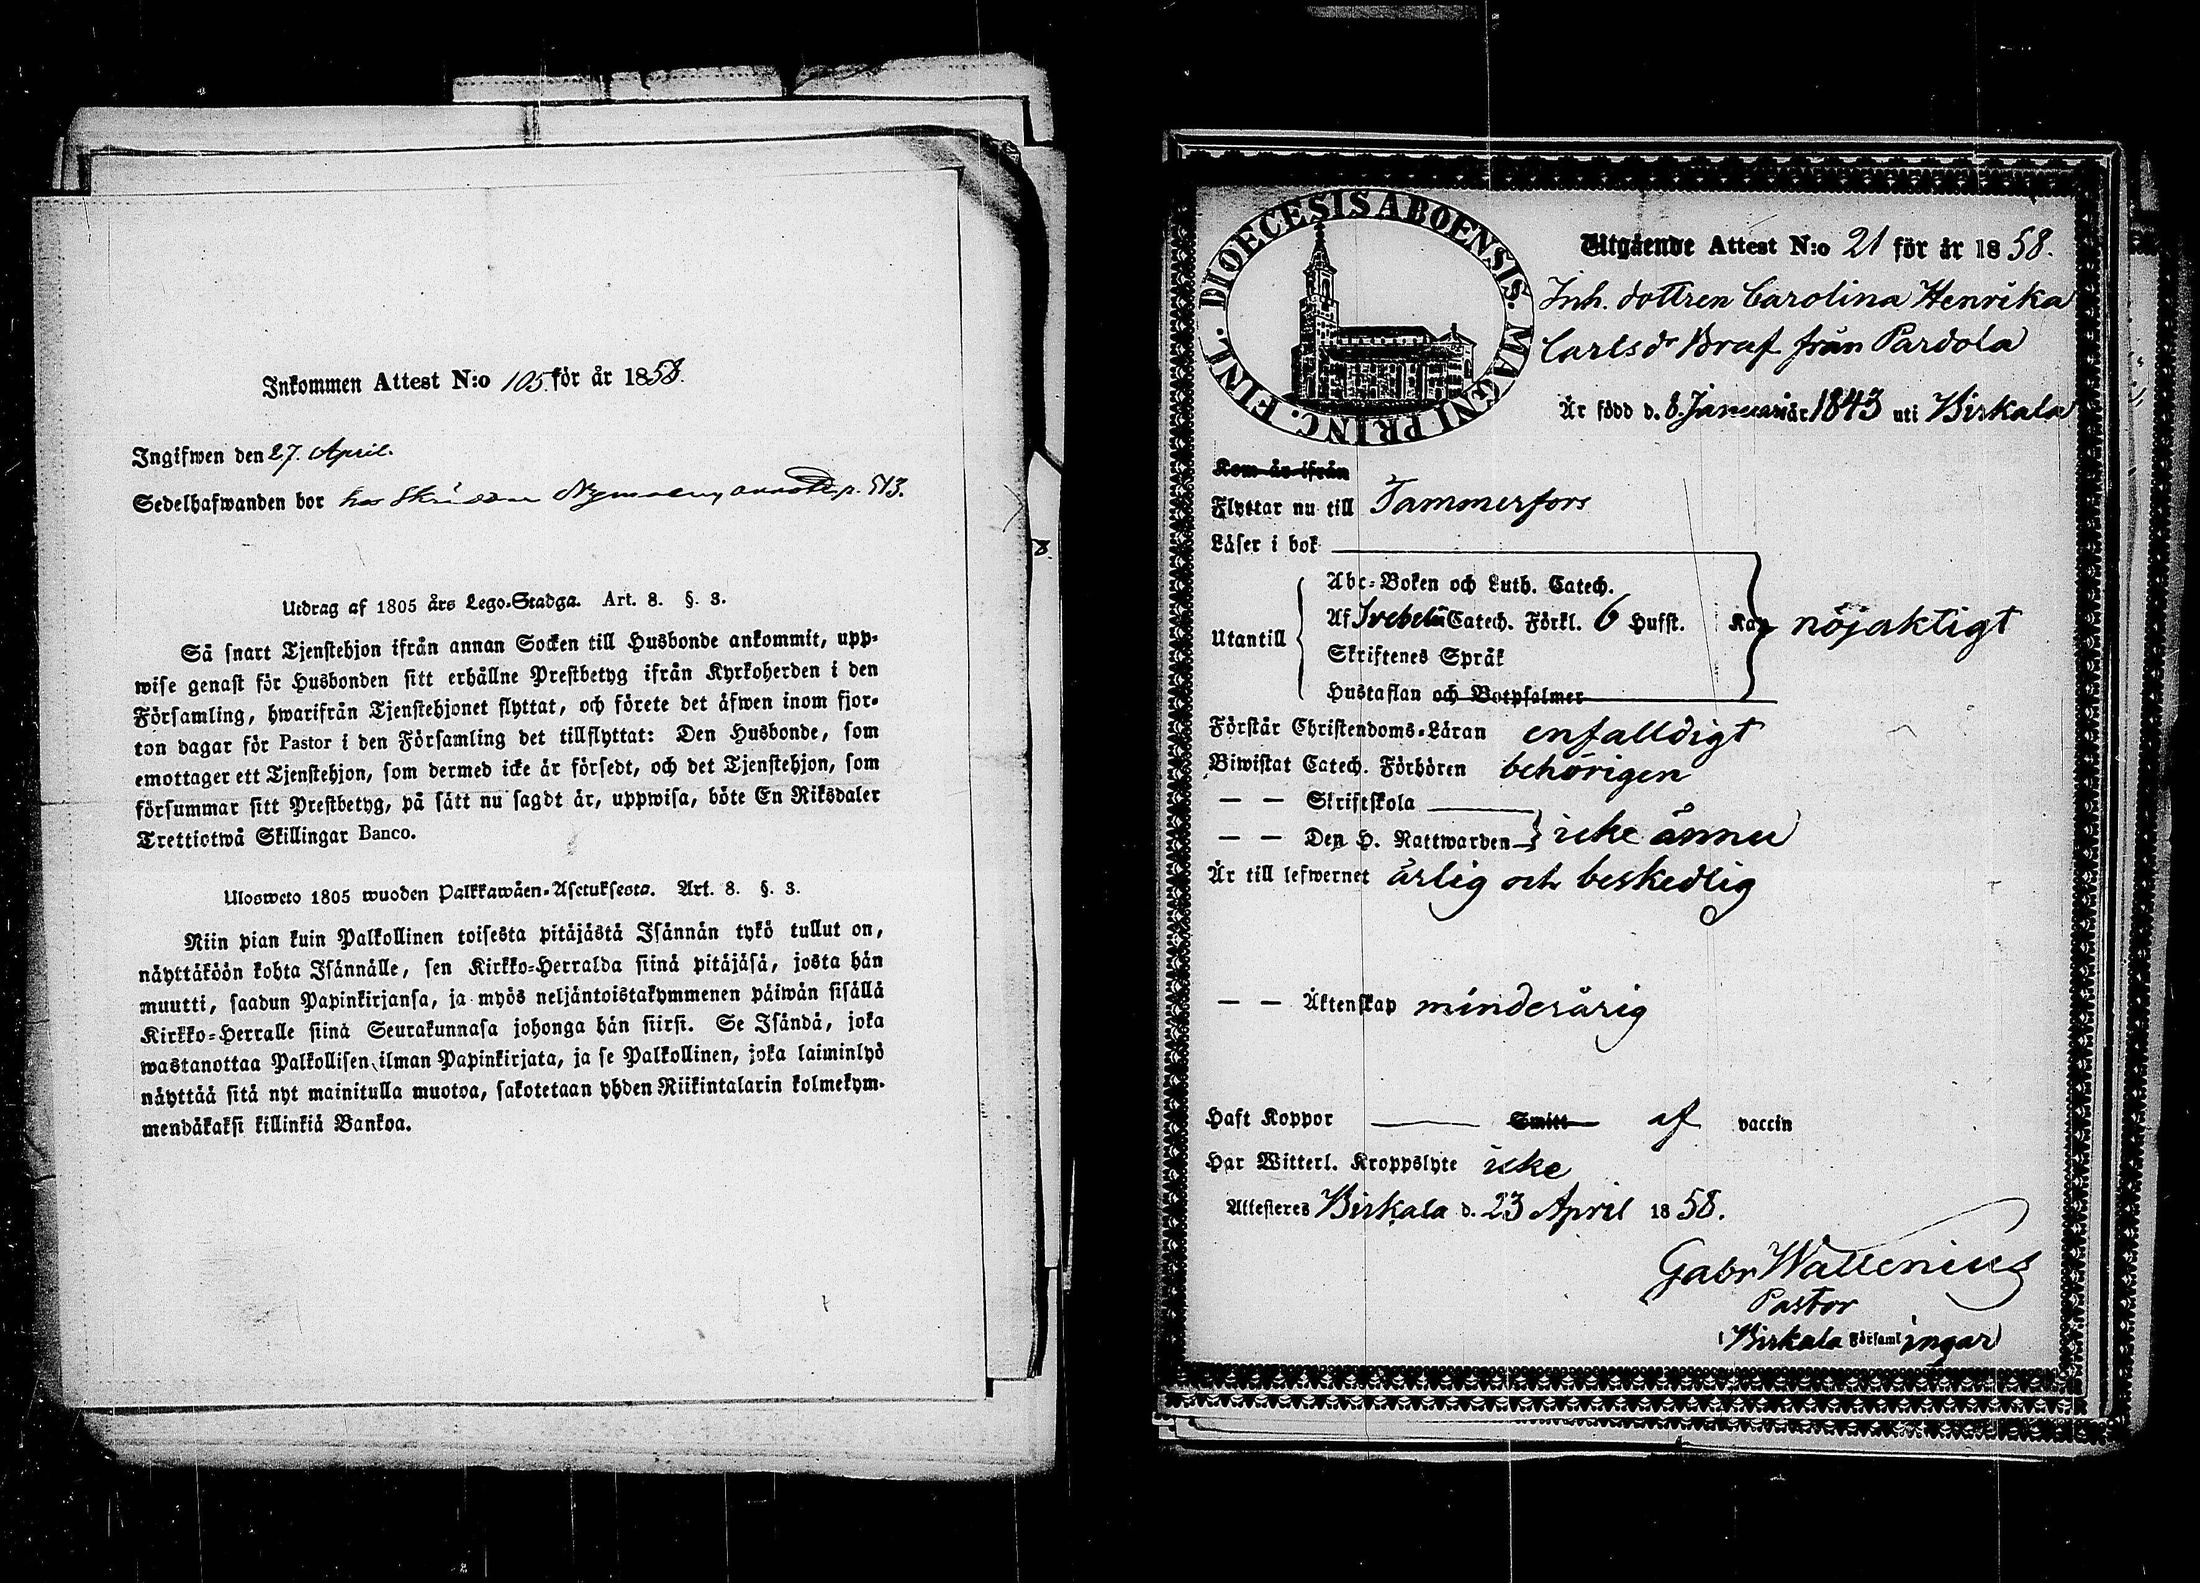 Inkommen Attest N:o 105 för år 1858.
Ingifwen den 27. April.
Sedelhafwanden bor hos Nyman, p. 513.
Utdrag af 1805 års Lego-Stadga. Art. 8. §. 3.
Så snart Tjenstehjon ifrån annan Socken till Husbonde ankommit, upp-
wise genast för Husbonden sitt erhållne Prestbetyg ifrån Kyrkoherden i den
Församling, hwarifrån Tjenstehjonet flyttat, och förete det äfwen inom fjor-
ton dagar för Pastor i den Församling det tillflyttat: Den Husbonde, som
emottager ett Tjenstehjon, som dermed icke är försedt, och det Tjenstehjon, som
försummar sitt Prestbetyg, på sätt nu sagdt är, uppwisa, böte En Riksdaler
Trettiotwå Skillingar Banco.
Ulosweto 1805 wuoden Palkkawäen-Asetuksesta. Art. 8. §. 3.
Niin pian kuin Palkollinen toisesta pitäjästä Isännän tykö tullut on,
näyttäköön kohta Isännälle, sen Kirkko-Herralda siinä pitäjäsä, josta hän
muutti, saadun Papinkirjansa, ja myös neljäntoistakymmenen päiwän sisällä
Kirkko-Herralle siinä Seurakunnasa johonga hän siirsi. Se Isändä, joka
wastanottaa Palkollisen ilman Papinkirjata, ja se Palkollinen, joka laiminlyö
näyttää sitä nyt mainitulla muotoa, sakotetaan yhden Riikintalarin kolmekym-
mendäkaksi killinkiä Bankoa.
8.
DIOECESIS ABOENSIS. MAGNI PRINC. FINL.
Utgående Attest N:o 21 för år 1858.
Inh. dottren Carolina Henrika
Carlsdr Braf från Pardola
Är född d. 8. Januari år 1843 uti Birkala
Kom år ifrån
Flyttar nu till Tammerfors
Läser i bok
Abc-Boken och Luth. Catech.
Utantill Af Svebelii Catech. Förkl. 6 Hufst. Kap nöjaktigt
Skriftenes Språk
Hustaflan och Botpsalmer
Förstår Christendoms-Läran enfalldigt
Biwistat Catech. Förhören behörigen
— — Skriftskola
— — Den H. Nattwarden icke ännu
Är till lefwernet ärlig och beskedlig
— — Äktenskap minderårig
Haft Koppor Smitt af vaccin
Har Witterl. Kroppslyte icke
Attesteres Birkala d. 23 April 1858.
Gabr Wallenius
Pastor
i Birkala Församlingar